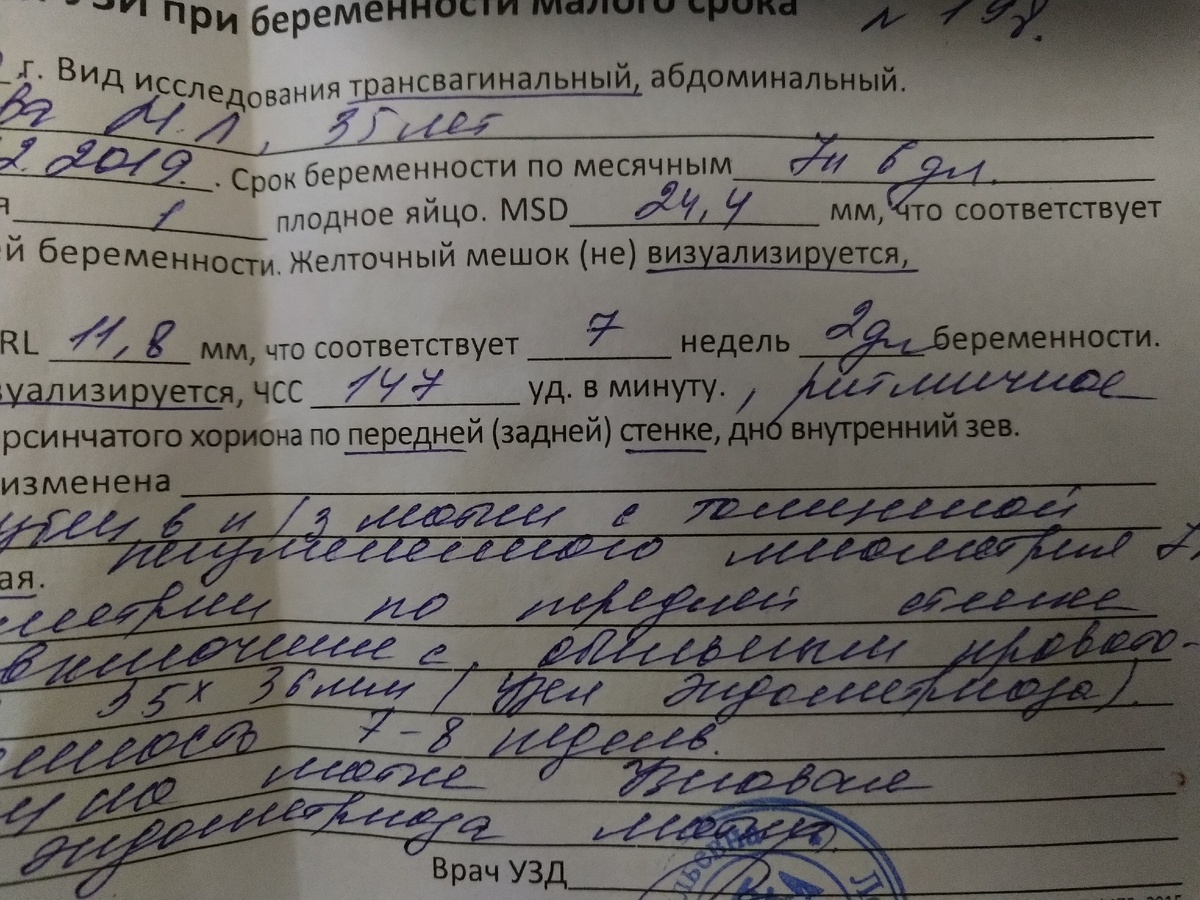 УЗИ при беременности малого срока № 198.
г. Вид исследования трансвагинальный, абдоминальный.
ва М.Л, 35 лет
2.2019. Срок беременности по месячным 7н 6 дн.
я 1 плодное яйцо. MSD 24,4 мм, что соответствует
ей беременности. Желточный мешок (не) визуализируется,
RL 11,8 мм, что соответствует 7 недель 2дн беременности.
зуализируется, ЧСС 147 уд. в минуту. , ритмичное
орсинчатого хориона по передней (задней) стенке, дно внутренний зев.
изменена
в н/3 матки с толщиной
неизмененного миометрия 7,
ая.
метрии по передней стенке
включение с обильным крово-
35х 36мм ( узел эндометриоза).
енность 7-8 недель.
на матке Узловая
эндометриоза матки.
Врач УЗД